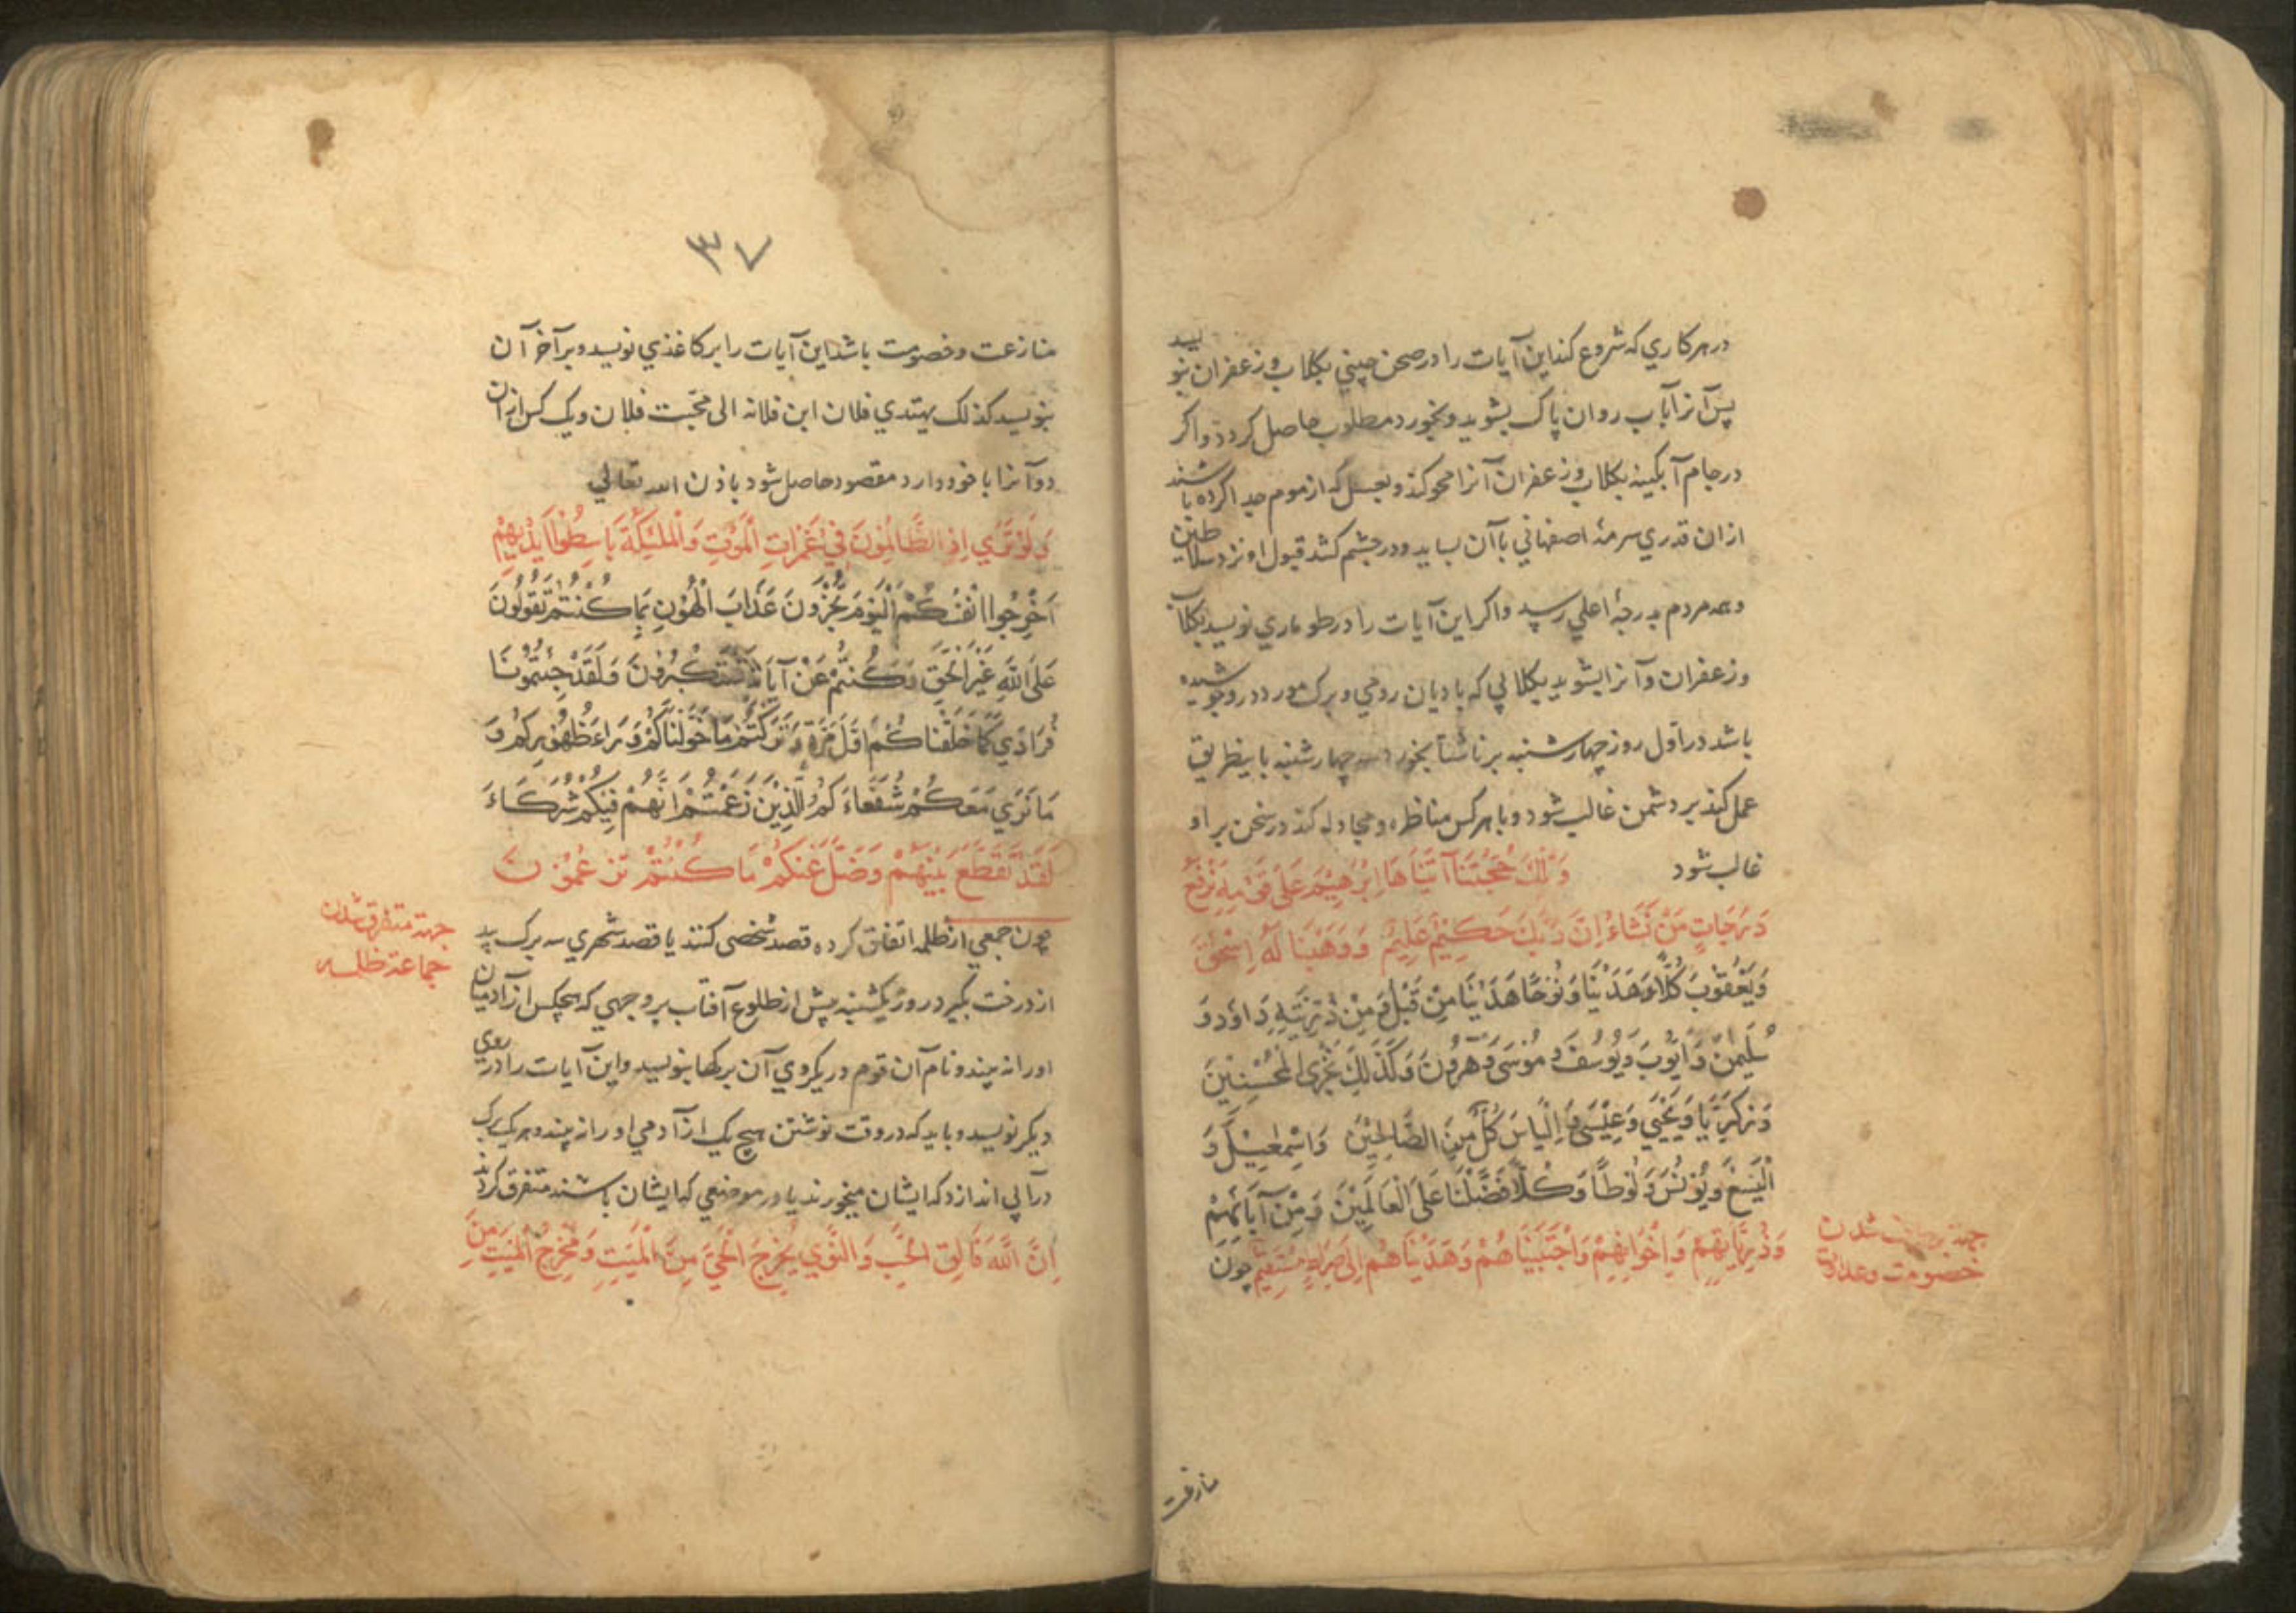 در هر کاری که شروع کند این آیات را در صحن چینی بکلاب و زعفران بنویسد
پس آنرا بآب روان پاک بشوید و بخورد مطلوب حاصل کردد و اکر
در جام آبکینه بکلاب و زعفران آنرا محو کند و بعسل که از موم جدا کرده باشند
ازان قدری سرمهٔ اصفهانی باآن بساید و در چشم کشد قبول او نزد سلاطین
و همه مردم بدرجهٔ اعلی رسد و اکر این آیات را در طوماری نویسد بکلاب
و زعفران و آنرا بشوید بکلابی که بادیان رومی و برک مورد در و جوشیده
باشد در اول روز چهارشنبه برناشتا بخورد سه چهارشنبه باینطریق
عمل کند بر دشمن غالب شود و با هر کس مناظره و مجادله کند در سخن بر او
غالب شود وَتِلْكَ حُجَّتُنَا آتَيْنَاهَا اِبْرٰهِيْمَ عَلٰى قَوْمِهِ نَرْفَعُ
دَرَجَاتٍ مَنْ نَشَاءُ اِنَّ رَبَّكَ حَكِيْمٌ عَلِيْمٌ وَوَهَبْنَا لَهُ اِسْحٰقَ
وَيَعْقُوْبَ كُلًّا هَدَيْنَا وَنُوْحًا هَدَيْنَا مِنْ قَبْلُ وَمِنْ ذُرِّيَّتِهِ دَاوُدَ وَ
سُلَيْمٰنَ وَاَيُّوْبَ وَيُوْسُفَ وَمُوْسَى وَهٰرُوْنَ وَكَذٰلِكَ نَجْزِى الْمُحْسِنِيْنَ
وَزَكَرِيَّا وَيَحْيَي وَعِيْسَى وَاِلْيَاسَ كُلٌّ مِنَ الصَّالِحِيْنَ وَاِسْمٰعِيْلَ وَ
الْيَسَعَ وَيُوْنُسَ وَلُوْطًا وَكُلًّا فَضَّلْنَا عَلَى الْعَالَمِيْنَ وَمِنْ آبَائِهِمْ
وَذُرِّيَّاتِهِمْ وَاِخْوَانِهِمْ وَاجْتَبَيْنَاهُمْ وَهَدَيْنَاهُمْ اِلَى صِرَاطٍ مُسْتَقِيْمٍ چون
جهة شدن
خصومت و عداوت
منازعت
۳۷
منازعت و خصومت باشد این آیات را بر کاغذی نویسد و بر آخر آن
بنویسد کذلک یهتدی فلان ابن فلانه الی محبّت فلان و یک کس ازان
دو آنرا با خود دارد مقصود حاصل شود باذن الله تعالی
وَلَوْ تَرٰي اِذِ الظَّالِمُوْنَ فِي غَمَرَاتِ الْمَوْتِ وَالْمَلٰئِكَةُ بَاسِطُوْا اَيْدِيْهِمْ
اَخْرِجُوا اَنْفُسَكُمْ اَلْيَوْمَ تُجْزَوْنَ عَذَابَ الْهُوْنِ بِمَا كُنْتُمْ تَقُوْلُوْنَ
عَلَى اللّٰهِ غَيْرَ الْحَقِّ وَكُنْتُمْ عَنْ آيَاتِهِ تَسْتَكْبِرُوْنَ وَلَقَدْ جِئْتُمُوْنَا
فُرَادٰي كَمَا خَلَقْنَاكُمْ اَوَّلَ مَرَّةٍ وَتَرَكْتُمْ مَا خَوَّلْنَاكُمْ وَرَاءَ ظُهُوْرِكُمْ وَ
مَا نَرٰي مَعَكُمْ شُفَعَاءَكُمُ الَّذِيْنَ زَعَمْتُمْ اَنَّهُمْ فِيْكُمْ شُرَكَاءَ
لَقَدْ تَقَطَّعَ بَيْنَهُمْ وَضَلَّ عَنْكُمْ مَا كُنْتُمْ تَزْعُمُوْنَ
جهة متفرق شدن
جماعة ظلمه
چون جمعی از ظلمه اتفاق کرده قصد شخصی کنند یا قصد شهری سه برک بید
از درخت بکیرد روز یکشنبه پیش از طلوع آفتاب بر وجهی که هیچکس از آدمیان
اورا نه بیند و نام آن قوم در یکروی آن برکها بنویسد و این آیات را در روی
دیکر نویسد و باید که در وقت نوشتن هیچ یک از آدمی اورا نه بیند و هر یک برک
در آبی اندازد که ایشان میخورند یا در موضعی که ایشان باشند متفرق کردند
اِنَّ اللّٰهَ فَالِقُ الْحَبِّ وَالنَّوٰي يُخْرِجُ الْحَيَّ مِنَ الْمَيِّتِ وَمُخْرِجُ الْمَيِّتِ مِنَ